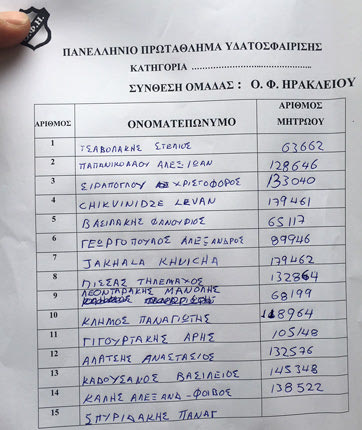 ΠΑΝΕΛΛΗΝΙΟ ΠΡΩΤΑΘΛΗΜΑ ΥΔΑΤΟΣΦΑΙΡΙΣΗΣ
ΚΑΤΗΓΟΡΙΑ ........................................
ΣΥΝΘΕΣΗ ΟΜΑΔΑΣ : Ο. Φ. ΗΡΑΚΛΕΙΟΥ
ΑΡΙΘΜΟΣ ΟΝΟΜΑΤΕΠΩΝΥΜΟ ΑΡΙΘΜΟΣ ΜΗΤΡΩΟΥ
1 ΤΣΑΒΟΛΑΚΗΣ ΣΤΕΛΙΟΣ 63662
2 ΠΑΠΑΝΙΚΟΛΑΟΥ 128646
3 ΧΡΙΣΤΟΦΟΡΟΣ 133040
4 CHIKVINIDZE LEVAN 179461
5 ΒΑΣΙΛΑΚΗΣ ΦΑΝΟΥΡΙΟΣ 65117
6 ΓΕΩΡΓΟΠΟΥΛΟΣ ΑΛΕΞΑΝΔΡΟΣ 89946
7 JAKHALA KHVICHA 179462
8 ΠΙΣΣΑΣ ΤΗΛΕΜΑΧΟΣ 132864
9 ΛΕΟΝΤΑΡΑΚΗΣ ΜΑΝΩΛΗΣ 68199
10 ΚΛΗΜΟΣ ΠΑΝΑΓΙΩΤΗΣ 118964
11 ΓΙΓΟΥΡΤΑΚΗΣ ΑΡΗΣ 105148
12 ΑΛΑΤΣΗΣ ΑΝΑΣΤΑΣΙΟΣ 132576
13 ΚΑΟΥΣΑΝΟΣ ΒΑΣΙΛΕΙΟΣ 145348
14 ΚΑΛΗΣ ΑΛΕΞΑΝΔ-ΦΟΙΒΟΣ 138522
15 ΣΠΥΡΙΔΑΚΗΣ ΠΑΝΑΓ